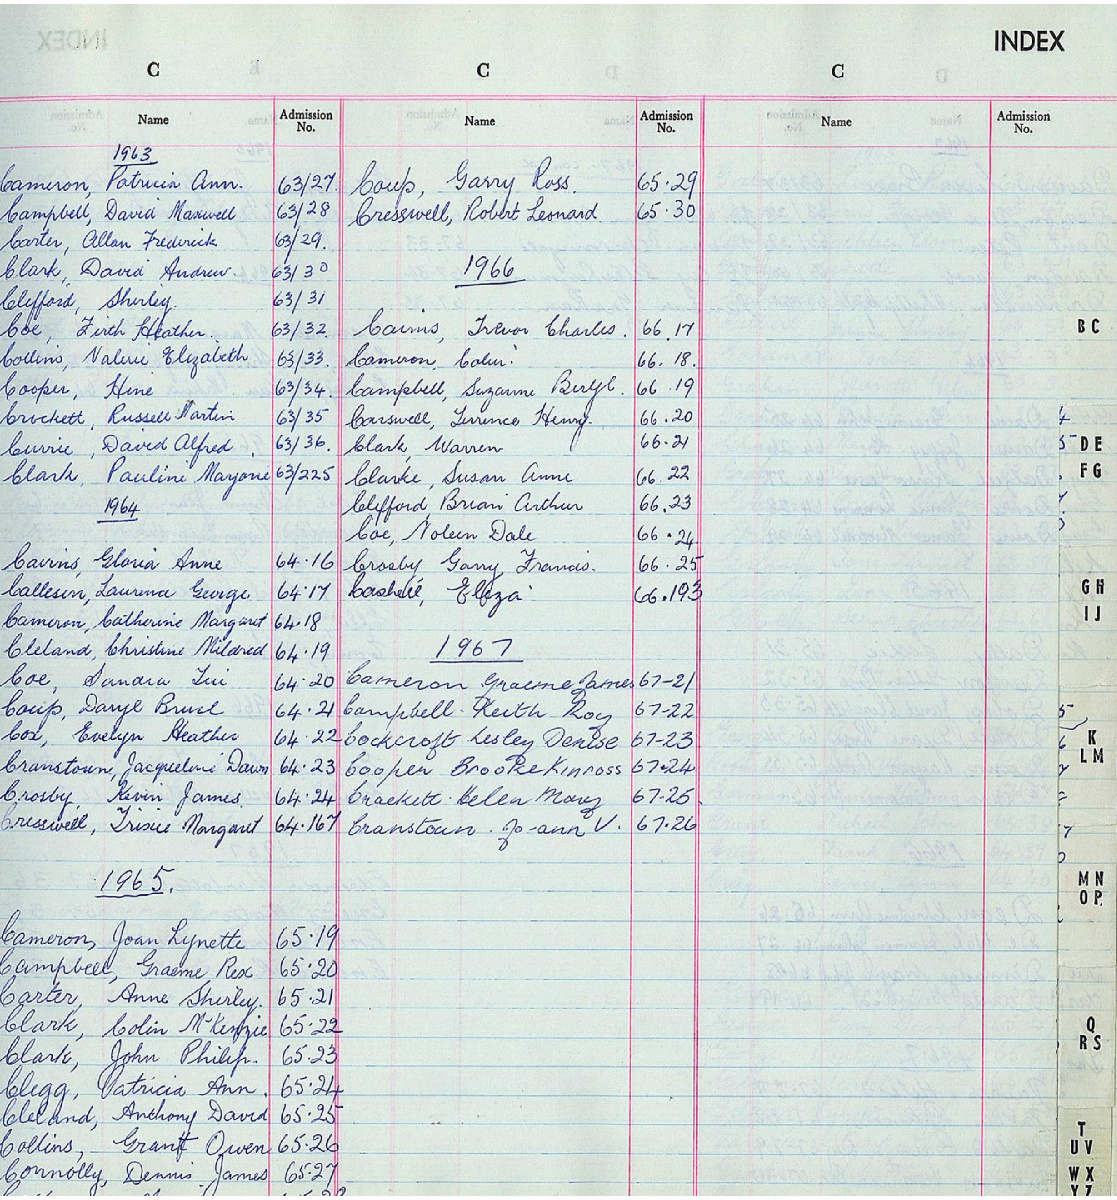 INDEX
C
Name
Admission No.
1963
Cameron, Patricia Ann. 63/27.
Campbell, David Maxwell 63/28
Carter, Allan Frederick 63/29.
Clark, David Andrew. 63/30
Clifford, Shirley. 63/31
Coe, Firth Heather. 63/32
Collins, Valerie Elizabeth 63/33.
Cooper, Hine 63/34.
Crockett, Russell Martin 63/35
Currie, David Alfred. 63/36.
Clark, Pauline Marjorie 63/225
1964
Cairns, Gloria Anne 64.16
Callesen, Laurence George 64.17
Cameron, Catherine Margaret 64.18
Cleland, Christine Mildred 64.19
Coe, Sandra 64.20
Coup, Daryl Bruce 64.21
Cox, Evelyn Heather 64.22
Cranstoun, Jacqueline Dawn 64.23
Crosby, Kevin James. 64.24
Cresswell, Trixie Margaret 64.167
1965.
Cameron, Joan Lynette 65.19
Campbell, Graeme Rex 65.20
Carter, Anne Shirley. 65.21
Clark, Colin McKenzie 65.22
Clark, John Philip. 65.23
Clegg, Patricia Ann. 65.24
Cleland, Anthony David 65.25
Collins, Grant Owen 65.26
Connolly, Dennis James 65.27
C
Name
Admission No.
Coup, Garry Ross. 65.29
Cresswell, Robert Leonard 65.30
1966
Cairns, Trevor Charles. 66.17
Cameron, Colin. 66.18.
Campbell, Suzanne Beryl. 66.19
Carswell, Terrence Henry. 66.20
Clark, Warren 66.21
Clarke, Susan Anne 66.22
Clifford Brian Arthur 66.23
Coe, Noleen Dale 66.24
Crosby Garry Francis. 66.25
Cashell, Eliza 66.193
1967
Cameron Graeme James 67-21
Campbell. Keith Roy 67-22
Cockcroft Lesley Denise 67-23
Cooper Brooke Kinross 67-24
Crackett. Helen Mary 67-25.
Cranstoun. Jo-ann V. 67.26
C
Name
Admission No.
B C
D E
F G
G H
I J
K
L M
M N
O P
Q
R S
T
U V
W X
Y Z